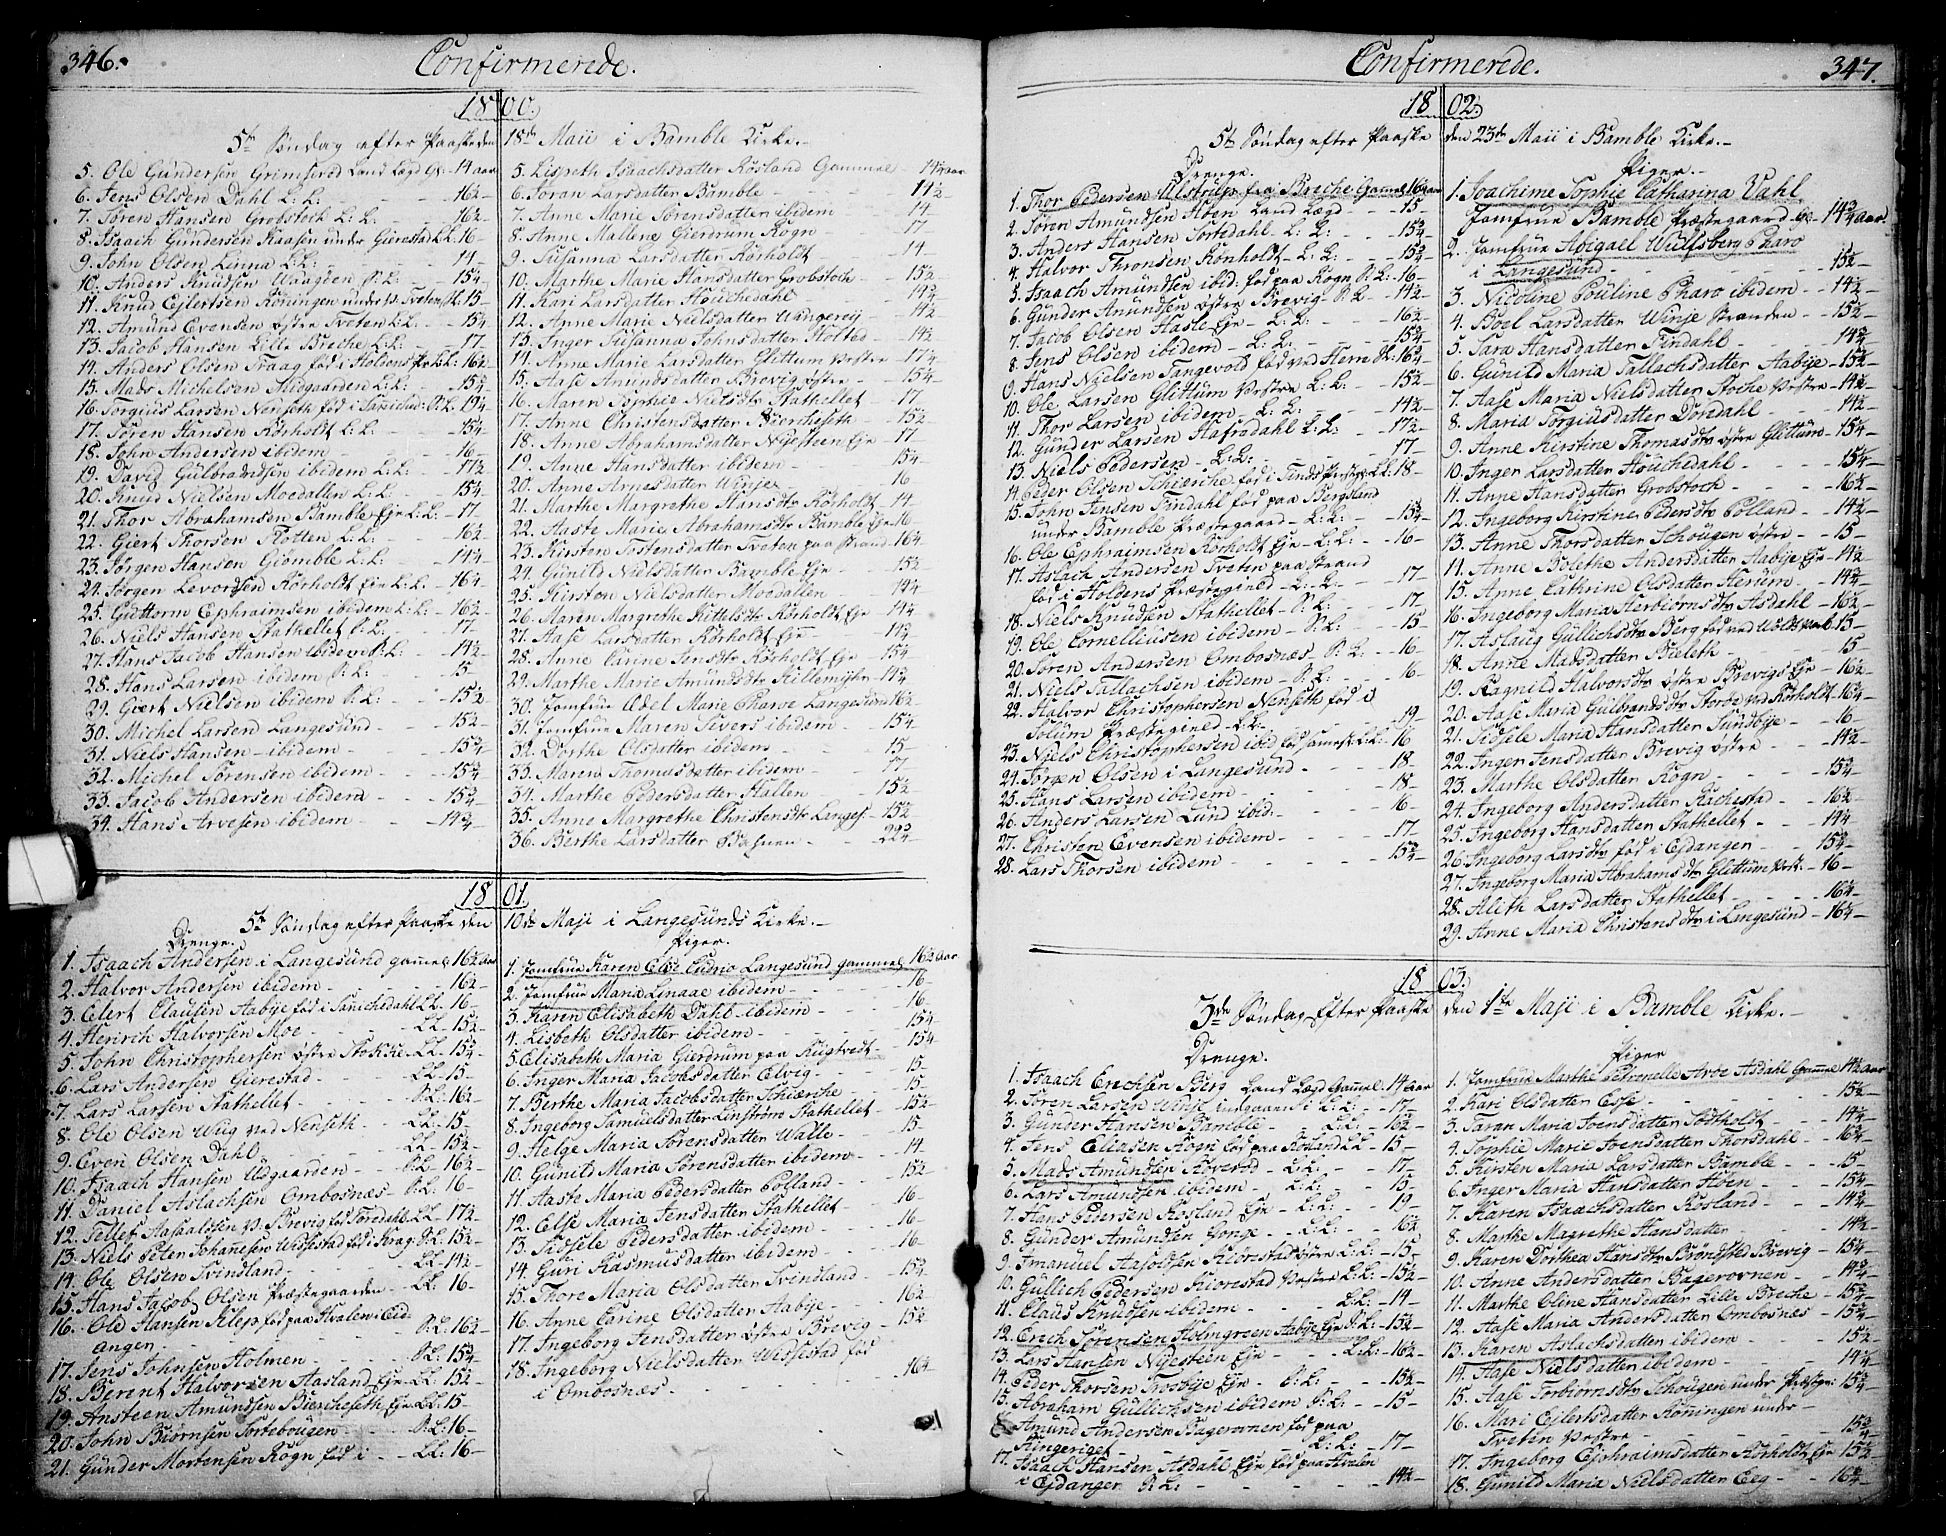 346.
Confirmerede.
1800.
5te Søndag efter Paaske den 18de Maii i Bamble Kirke.
5. Ole Gundersen Grimserød Land Lægd G: 14 aar
6. Jens Olsen Dahl L: L: 16½
7. Søren Hansen Grobstock L: L: 16½
8. Isaach Gundersen Kaasen under Gierestad L.L. 16
9. John Olsen Linna L.L: 14
10. Anders Knudsen Vaagøen S: L: 15¼
11. Knud Ejlertsen Køningen under W. Tveten S.L. 15
12. Amund Evensen østre Tveten L:L. 15¼
13. Jacob Hansen Lille Breche L:L: 17
14. Anders Olsen Traag fød i Holdens Pr: L.L: 16½
15. Mads Michelsen Midgaarden L: L: 15¼
16. Torgius Larsen Nenseth fød i Saniched: S: L. 19¼
17. Søren Hansen Rørholt L: L: 15¼
18. John Andersen ibidem 16
19. David Gulbrandsen ibidem L: L: 17½
20. Knud Nielsen Moedallen L: L. 15¼
21. Thor Abrahamsen Bamble Eje L: L: 17
22. Giert Thorsen Rotten L: L: 16½
23. Jørgen Hansen Giømble L: L: 14¾
24. Jørgen Levordsen Rørholt Eje L: L. 16¼
25. Guttorm Ephraimsen ibidem L: L: 16½
26. Niels Hansen Stathellet S: L. 17
27. Hans Jacob Hansen ibidem S: L: 14½
28. Hans Larsen ibidem S: L: 15
29. Giert Nielsen ibidem S: L: 15½
30. Michel Larsen Langesund 15½
31. Niels Hansen ibidem 15¾
32. Michel Sørensen ibidem 15¾
33. Jacob Andersen ibidem 15¾
34. Hans Arvesen ibidem 14¾
5. Lispeth Isaachsdatter Røsland Gammel 14½ aar
6. Søran Larsdatter Bamble 14½
7. Anne Marie Sørensdatter ibidem 14
8. Anne Mallene Gierdrum Rogn 17
9. Susanna Larsdatter Rørholt 14
10. Marthe Marie Hansdatter Grobstoch 15½
11. Kari Larsdatter Houchedahl 14¾
12. Anne Marie Nielsdatter Wangerej 14½
13. Inger Susanna Johnsdatter Holted 14½
14. Anne Marie Larsdatter Glittum Vestre 17¼
15. Aase Amundsdatter Brevig østre 15¼
16. Maren Sophie Nielsdtr Stathellet 17
17. Anne Christensdatter Biercheseth 15½
18. Anne Abrahamsdatter Nygesteen Eje 17
19. Anne Hansdatter ibidem 15¼
20. Anne Arnesdatter Winje 16
21. Marthe Margrethe Hansdtr Rørholt 14
22. Haste Marie Abrahamsdtr Bamble Eje 16
23. Kirsten Tostensdatter Tveten paa Strand 16¼
24. Gunild Nielsdatter Bamble Eje 15½
25. Kirsten Nielsdatter Moedallen 14¼
26. Maren Margrethe Kittelsdtr Rørholt Eje 14¼
27. Aase Larsdatter Rørholt Eje 14¾
28. Anne Carine Jensdtr Rørholt Eje 15¼
29. Marthe Marie Amundsdtr Killemyhr 14¾
30. Jomfrue Adel Marie Charve Langesund 16½
31. Jomfrue Maren Sivers ibidem 15¼
32. Dorthe Olsdatter ibidem 15
33. Maren Thomasdatter ibidem 17
34. Marthe Pedersdatter Hallen 15½
35. Anne Margrethe Christensdtr Langes. 15½
36. Berthe Larsdatter 22¾
1801.
5te Søndag efter Paaske den 10de Maji i Langesunds Kirke.
Drenge.
1. Isaach Andersen i Langesund gammel 16½ aar
2. Halvor Andersen ibidem 16½
3. Eilert Clausen Aabye fød i Sanichedahl LL. 16
4. Henrich Halvorsen Moe LL. 15½
5. John Christophersen østre Stokke LL. 15¾
6. Lars Andersen Gierestad LL. 15
7. Lars Larsen Stathellet S.L: 16½
8. Ole Olsen Wiig ved Nenseth LL: 15
9. Even Olsen Dahl LL. 15½
10. Isaach Hansen Udgaarden S.L. 16½
11. Daniel Aslachsen Ombosnæs S: L: 16
12. Tellef Aasaalssen V. Brevig fød Tørdahl LL. 17½
13. Niels Peter Johansen Widstad fød i Krag. S.L: 15½
14. Ole Olsen Svindland LL. 14½
15. Hans Jacob Olsen Præstegaarden LL. 16
16. Ole Hansen Klep fød paa Hvalen i Eid
anger S: L: 16½
17. Jens Johnsen Holmen S.L: 15¾
18. Berent Halvorsen Aasland Eje LL: 15½
19. Ansteen Amundsen Biercheseth Eje LL: 15
20. John Biørnsen Sortebougen S.L: 16
21. Gunder Mortensen Rogn fød i LL: 16
Piger.
1. Jomfrue Karen Else Cudrio Langesund gammel 16½ aar
2. Jomfrue Maria Linaae ibidem 16
3. Karen Elisabeth Dahl ibidem 16
4. Lisbeth Olsdatter ibidem 15¼
5. Elisabeth Maria Gierdrum paa Rugtvedt 15¼
6. Inger Maria Jacobsdatter Elvig 15
7. Berthe Maria Jacobsdatter Schierche 15
8. Ingeborg Samuelsdatter Linstrøm Stathellet 15½
9. Helge Maria Sørensdatter Walle 15
10. Gunild Maria Sørensdatter ibidem 14
11. Haste Maria Pedersdatter Polland 15½
12. Else Maria Jensdatter Stathellet 16
13. Sidsele Pedersdatter ibidem 16
14. Guri Rasmusdatter ibidem 16
15. Thore Maria Olsdatter Svindland 15¾
16. Anne Carine Olsdatter Aabije 16½
17. Ingeborg Jensdatter østre Brevig 15½
18. Ingeborg Nielsdatter Widstad fød
i Ombosnæs 16¼
Confirmerede.
347.
1802.
5te Søndag efter Paaske den 23de Maii i Bamble Kirke.
Drenge.
1. Thor Pedersen Ulstrup fra Breche Gammel 16 aar
2. Søren Amundsen Aben Land Lægd 15
3. Anders Hansen Tortedahl L: L: 15¼
4. Halvor Thronsen Rønholt L: L: 15¾
5. Isaach Amundsen ibid: fød paa Rogn S: L: 16
6. Gunder Amundsen østre Brevig S: L 14½
7. Jacob Olsen Hasle Eje L: L: 16½
8. Jens Olsen ibidem L: L: 15¾
9. Hans Nielsen Tangevold fød ved Herre S: 16¼
10. Ole Larsen Glittum Vestre L: L: 15½
11. Thor Larsen ibidem L: L: 14½
12. Gunder Larsen Hafredahl L: L: 17½
13. Niels Pedersen L: L: 17
14. Peder Olsen Schierche fød i Tinds Præstegl: L.L: 18
15. John Jensen Findahl fød paa Bergsland
under Bamble Præstegaard L: L: 15¾
16. Ole Ephraimsen Rørholt Eje L: L: 16
17. Aslach Andersen Tveten paa Strand
fød i Holdens Præstegield L: L. 17
18. Niels Knudsen Stathellet S: L: 17
19. Ole Corneliussen ibidem S: L: 15
20. Søren Andersen Ombosnæs S: L: 16
21. Niels Tallachsen ibidem S: L: 16
22. Halvor Christophersen Nenseth fød i
Solum Præstegield L.L: 19
23. Niels Christophersen ibid fød sammest: L:L: 16
24. Jørgen Olsen i Langesund 18
25. Hans Larsen ibidem 18
26. Anders Larsen Lund ibid: 16
27. Christen Evensen ibidem 17
28. Lars Thorsen ibidem 15¾
Piger.
1. Joachime Sophie Catharina Vahl
Jomfrue Bamble Præstegaard G: 14¾ Aar.
2. Jomfrue Abigael Wulfsberg Pharo
i Langesund 15½
3. Nicoline Pouline Pharo ibidem 14½
4. Boel Larsdatter Winje Stranden 15½
5. Sara Hansdatter Findahl 14¾
6. Gunild Maria Tallachsdatter Aabije 15½
7. Aase Maria Nielsdatter Stoche Vestre 14½
8. Maria Torgiusdatter Dørdahl 14½
9. Anne Kirstine Thomasdtr østre Glittum 15¼
10. Inger Larsdatter Houchedahl 15¼
11. Anne Hansdatter Grobstoch 16½
12. Ingeborg Kirstine Pedersdtr Polland 14½
13. Anne Thorsdatter Schougen østre 15
14. Anne Bolethe Andersdatter Aabije Eje 14½
15. Anne Cathrine Olsdatter Herum 14¾
16. Ingeborg Maria Herbiørnsdtr Asdahl 16½
17. Aslaug Gullichsdtr Berg fød ved 15
18. Anne Madsdatter Bieleth 15
19. Ragnild Halvorsdtr østre Brevigs Eje 16½
20. Aase Maria Gulbrandsdtr Storøe ved Rørholt 16¼
21. Sidsele Maria Hansdatter Sundbije 16
22. Inger Jensdatter Brevig østre 14½
23. Marthe Olsdatter Rogn 15¾
24. Ingeborg Andersdatter Rachestad 16½
25. Ingeborg Hansdatter Stathellet 14¼
26. Ingeborg Larsdtr fød i Ejdanger 15¾
27. Ingeborg Maria Abrahamsdtr Glittum Vest: 16
28. Alith Larsdatter Stathellet 16½
29. Anne Maria Christensdtr i Langesund 16¼
1803.
3de Søndag Efter Paaske den 1te Maji i Bamble Kirke.
Drenge.
1. Isaach Erichsen Berg Land Lægd Gammel 14 aar
2. Søren Larsen Winje indgaaen i L: L: 17
3. Gunder Hansen Bamble L: L: 16½
4. Jens Eliasen Rogn fød paa Rosland LL 15
5. Mads Amundsen Røverød L: L: 17
6. Lars Amundsen ibidem L: L: 15
7. Hans Pedersen Rosland Eje L: L: 19
8. Gunder Amundsen Gonge L.L: 16½
9. Imanuel Aasolssen Kiørstad østre L: L. 15
10. Gullich Pedersen Kiørestad Vestre L: L. 15½
11. Claus Knudsen ibidem L.L: 14
12. Erich Sørensen Holmgreen Aabije Eje S: L: 15½
13. Lars Hansen Nijesteen Eje L: L: 16½
14. Peder Thorsen Trosbije Eje S: L: 15½
15. Abraham Gullichsen ibidem S: L: 15
Amund Andersen Bagerovnen fød paa
Ringeriget L: L: 17
17. Isaach Hansen Asdahl Eje fød paa Hvalen
i Ejdanger S: L: 14½
Piger
1. Jomfrue Marthe Petronelle Aroe Asdahl Gammel 14½ aar
2. Kari Olsdatter Esse 15½
3. Saran Maria Joensdatter Sødtholt 14¼
4. Sophie Marie Joensdatter Thorsdahl 16¼
5. Kirsten Maria Larsdatter Bamble 15
6. Inger Maria Hansdatter Aben 15¼
7. Karen Isaachsdatter Rosland 14¼
8. Marthe Magrethe Hansdatter 14½
9. Karen Dorthea Hansdtr Brøndsted Brevig 15¼
10. Anne Andersdatter Bagerovnen 14¾
11. Marthe Oline Hansdatter Lille Breche 15½
12. Aase Maria Andersdatter Ombosnæs 15¾
13. Karen Aslachsdatter ibidem 15½
14. Aase Nielsdatter ibidem 14¼
15. Aase Torbiørnsdtr Schougen under Præstegr: 15¾
16. Mari Ejlertsdatter Køningen under
Tveten Vestre 15¾
17. Ingeborg Ephraimsdatter Rørholt Eje 15½
18. Gunild Maria Nielsdatter Eeg 16¾